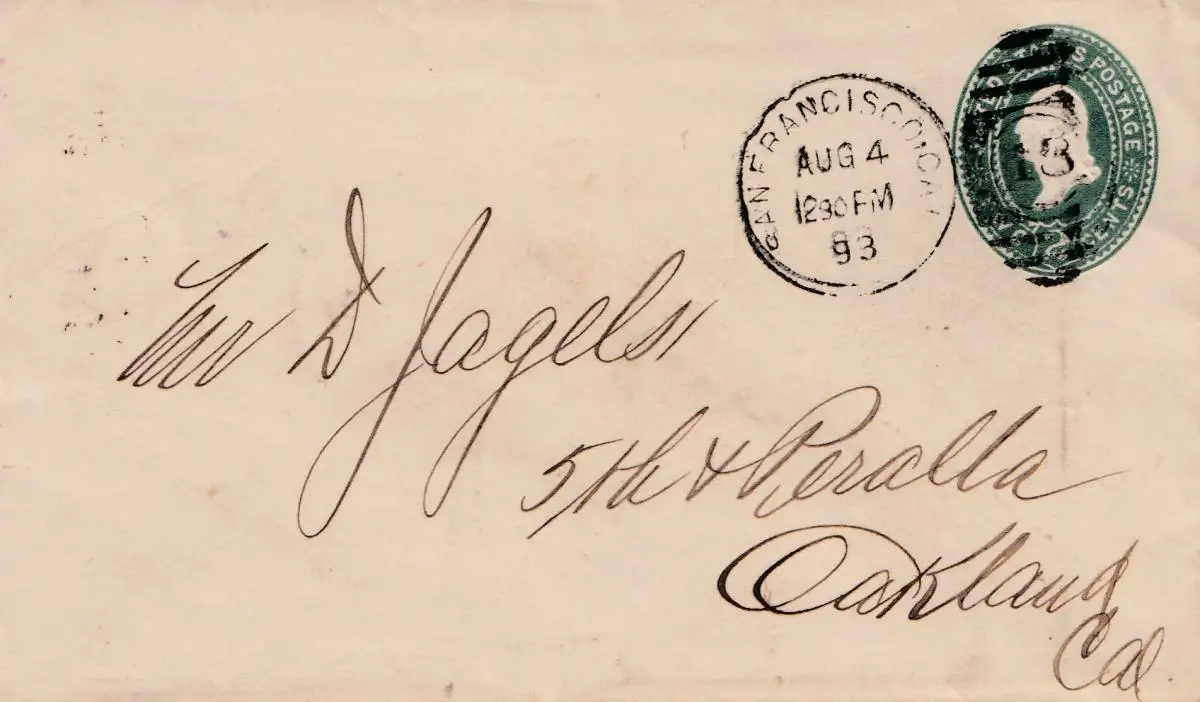 SAN FRANCISCO, CAL
AUG 4
1230 PM
93
STATES POSTAGE
18
Mr D Jagels
5th & Peralta
Oakland
Cal.